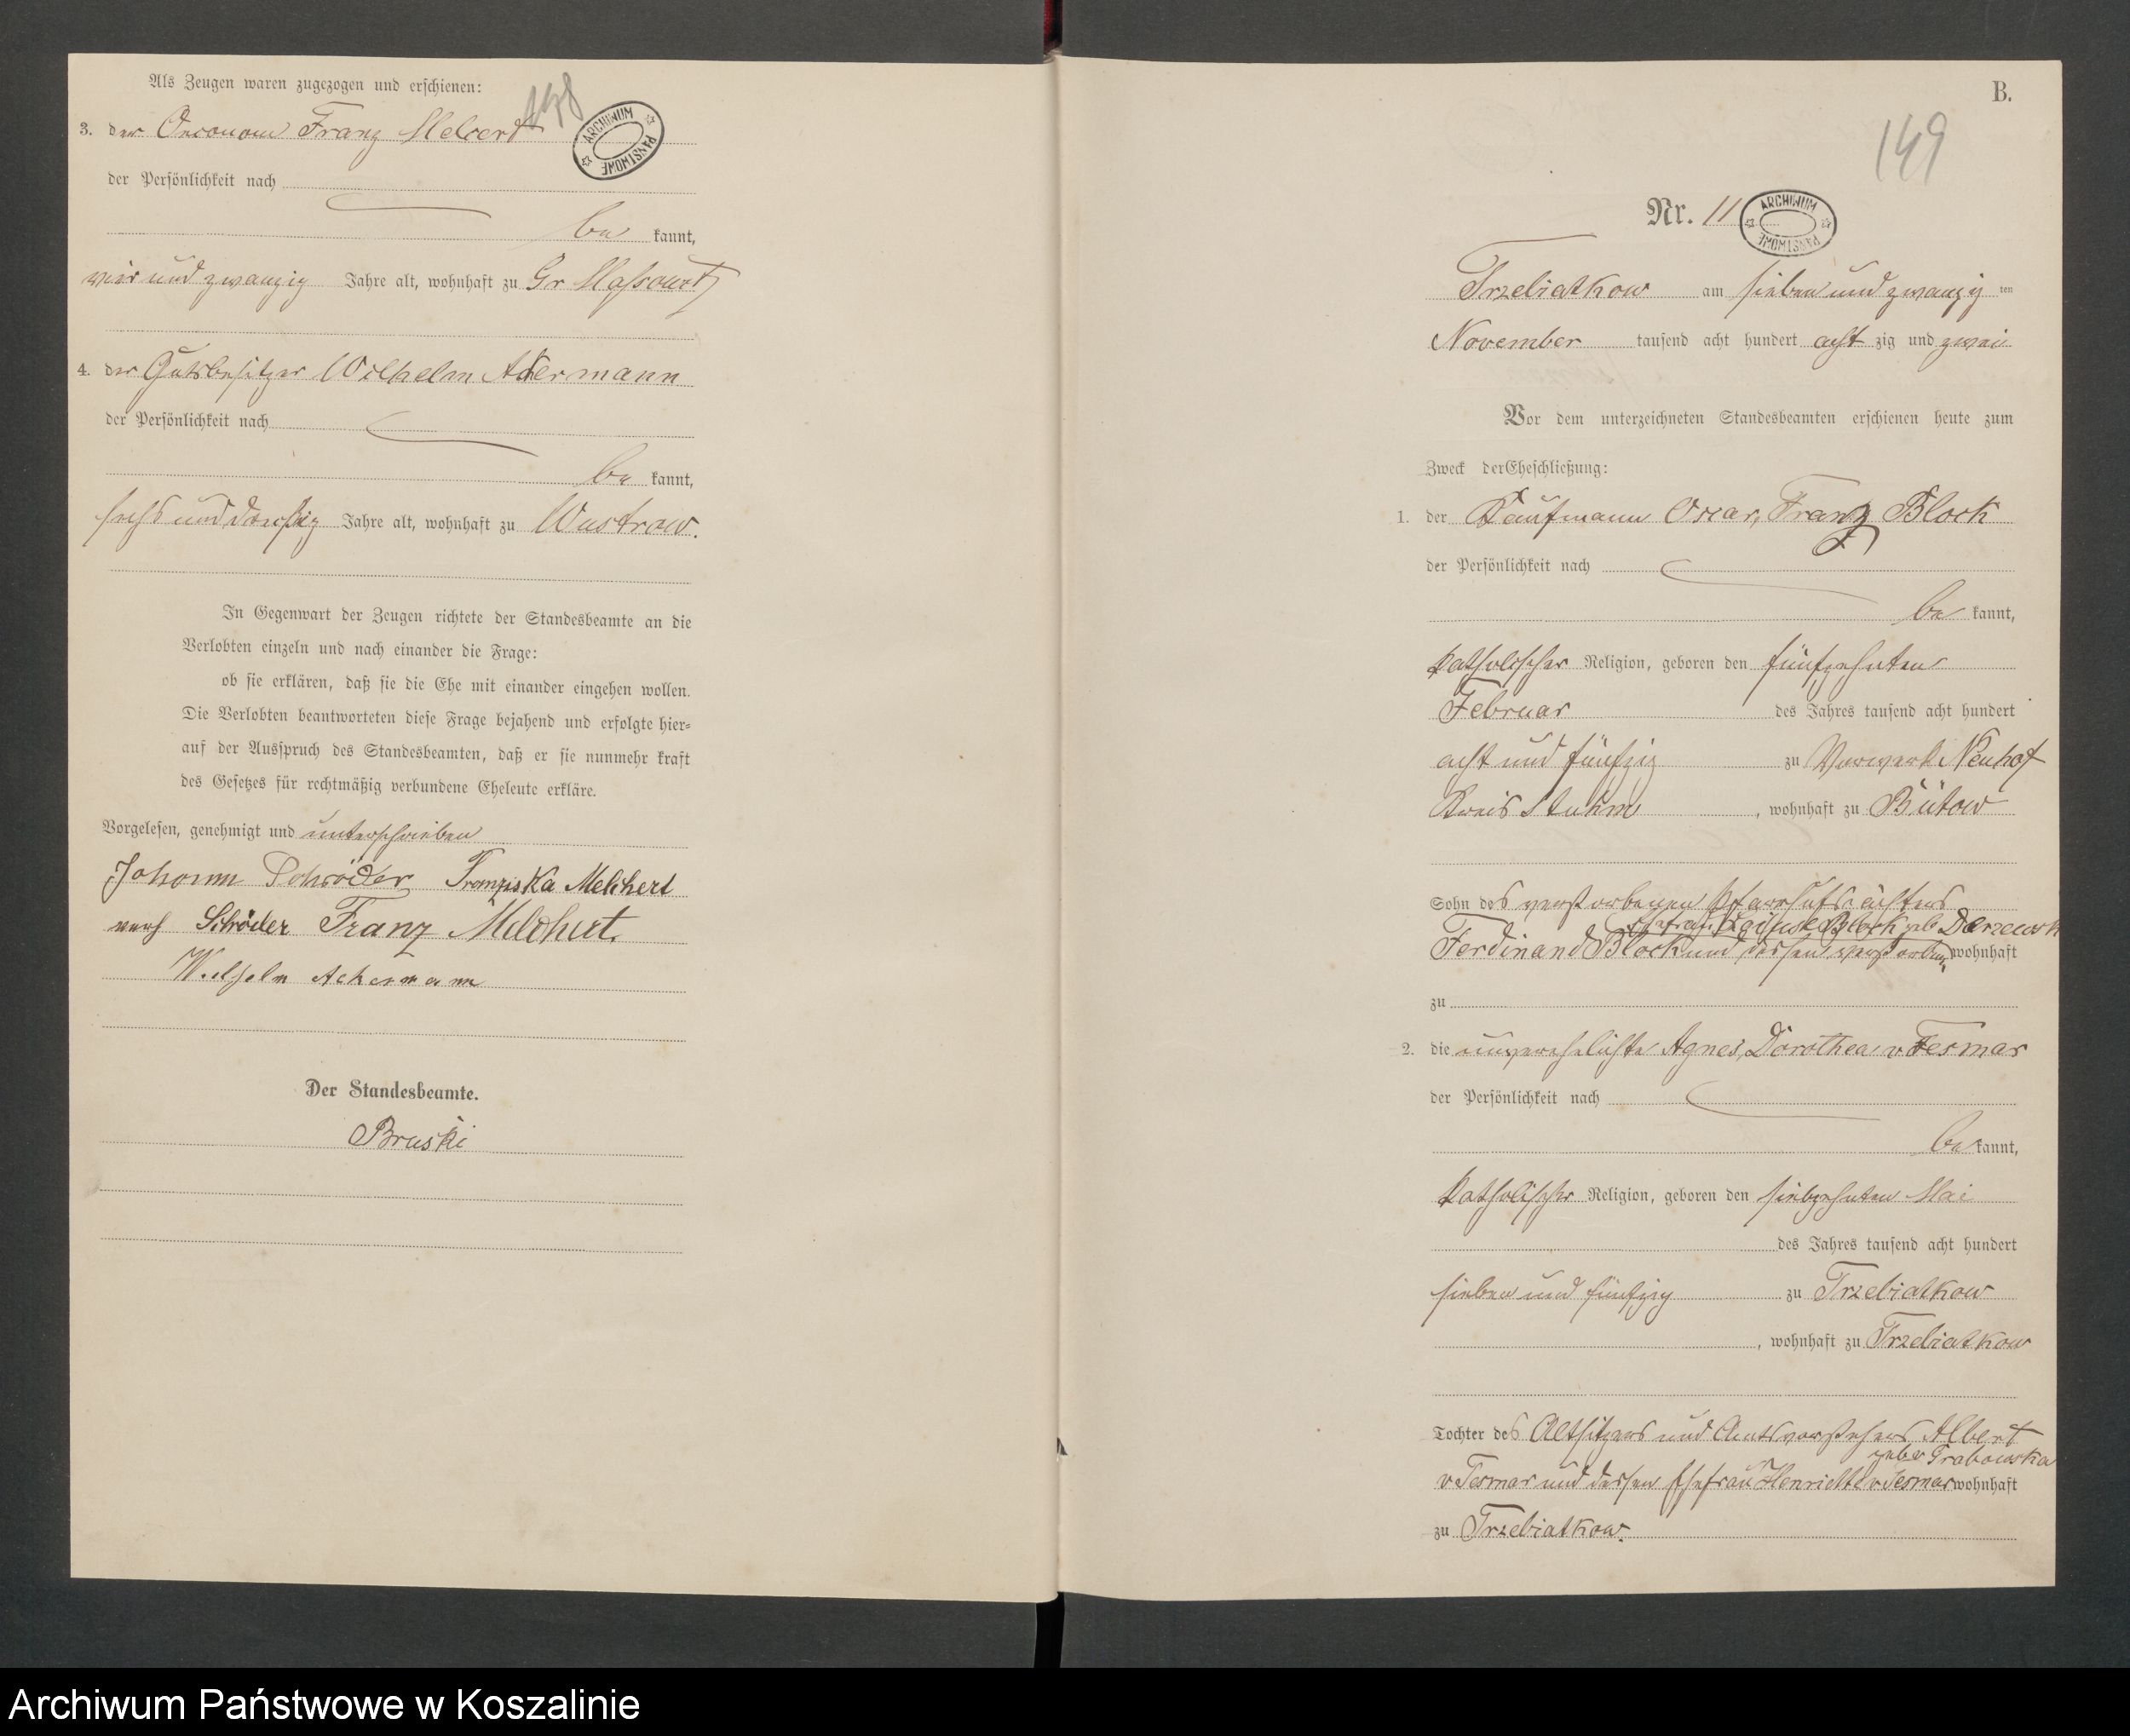 Als Zeugen waren zugezogen und erschienen:
148
ARCHIWUM PAŃSTWOWE
3. der Oeconom Franz Melcert
der Persönlichkeit nach
be kannt,
vier und zwanzig Jahre alt, wohnhaft zu Gr Massowitz
4. der Gutsbesitzer Wilhelm Ackermann
der Persönlichkeit nach
be kannt,
sechs und dreißig Jahre alt, wohnhaft zu Wustrow.
In Gegenwart der Zeugen richtete der Standesbeamte an die
Verlobten einzeln und nach einander die Frage:
ob sie erklären, daß sie die Ehe mit einander eingehen wollen.
Die Verlobten beantworteten diese Frage bejahend und erfolgte hier-
auf der Ausspruch des Standesbeamten, daß er sie nunmehr kraft
des Gesetzes für rechtmäßig verbundene Eheleute erkläre.
Vorgelesen, genehmigt und unterschrieben
Johann Schröder Franziska Melchert
verh Schröder Franz Melchert.
Wilhelm Ackermann
Der Standesbeamte.
Bruski
B.
149
Nr. 11
ARCHIWUM PAŃSTWOWE
Trzebiatkow am sieben und zwanzig ten
November tausend acht hundert acht zig und zwei
Vor dem unterzeichneten Standesbeamten erschienen heute zum
Zweck der Eheschließung:
1. der Kaufmann Oscar, Franz Block
der Persönlichkeit nach
be kannt,
katholischer Religion, geboren den fünfzehnten
Februar des Jahres tausend acht hundert
acht und fünfzig zu Vorwerk Neuhof
Kreis Stuhm, wohnhaft zu Bütow
Sohn des verstorbenen Pfarrhufspächters
Ehefrau Block geb
Ferdinand Block und dessen verstorbene wohnhaft
zu
2. die unverehelichte Agnes, Dorothea v Tesmar
der Persönlichkeit nach
be kannt,
katholischer Religion, geboren den siebzehnten Mai
des Jahres tausend acht hundert
sieben und fünfzig zu Trzebiatkow
, wohnhaft zu Trzebiatkow
Tochter des Altsitzers und Amtsvorstehers Albert
geb v Grabowska
v Tesmar und dessen Ehefrau Henriette v Tesmar wohnhaft
zu Trzebiatkow.
Archiwum Państwowe w Koszalinie